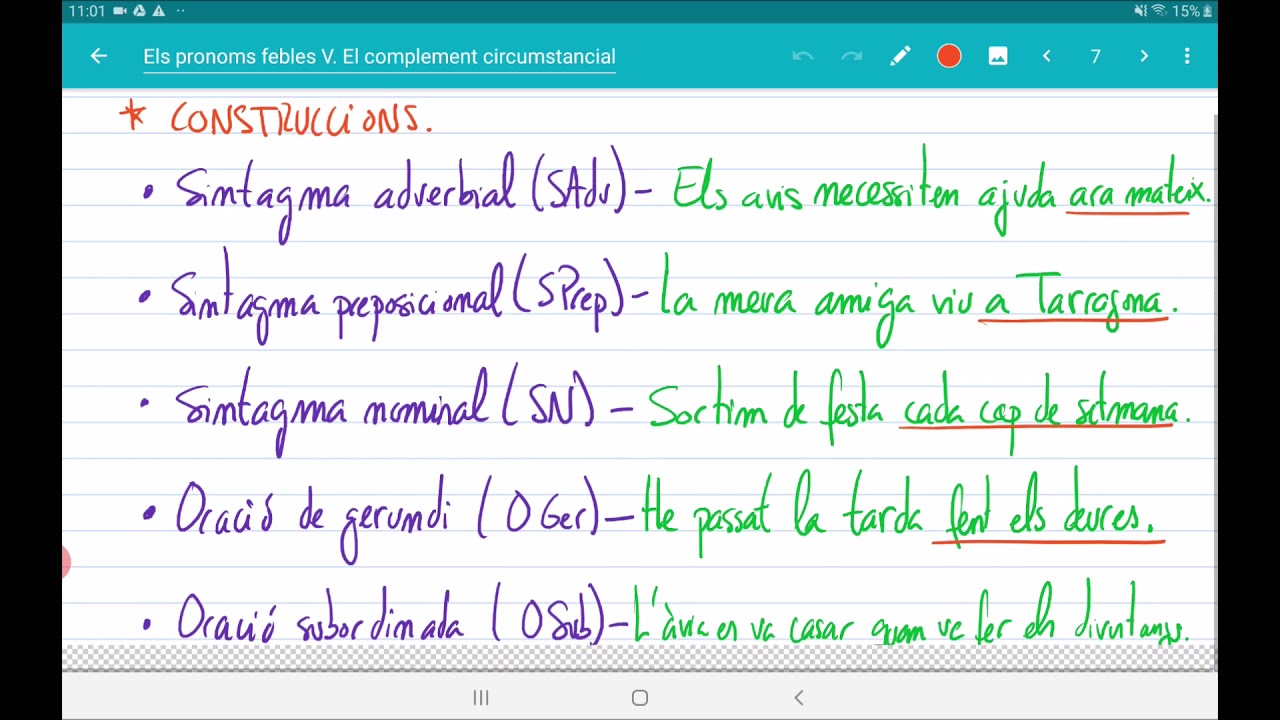 11:01 15%
Els pronoms febles V. El complement circumstancial 7
* CONSTRUCCIONS.
• Sintagma adverbial (SAdv) - Els avis necessiten ajuda ara mateix.
• Sintagma preposicional (SPrep) - La meva amiga viu a Tarragona.
• Sintagma nominal (SN) - Sortim de festa cada cap de setmana.
• Oració de gerundi (OGer) - He passat la tarda fent els deures.
• Oració subordinada (OSub) - L'àvia es va casar quan va fer els